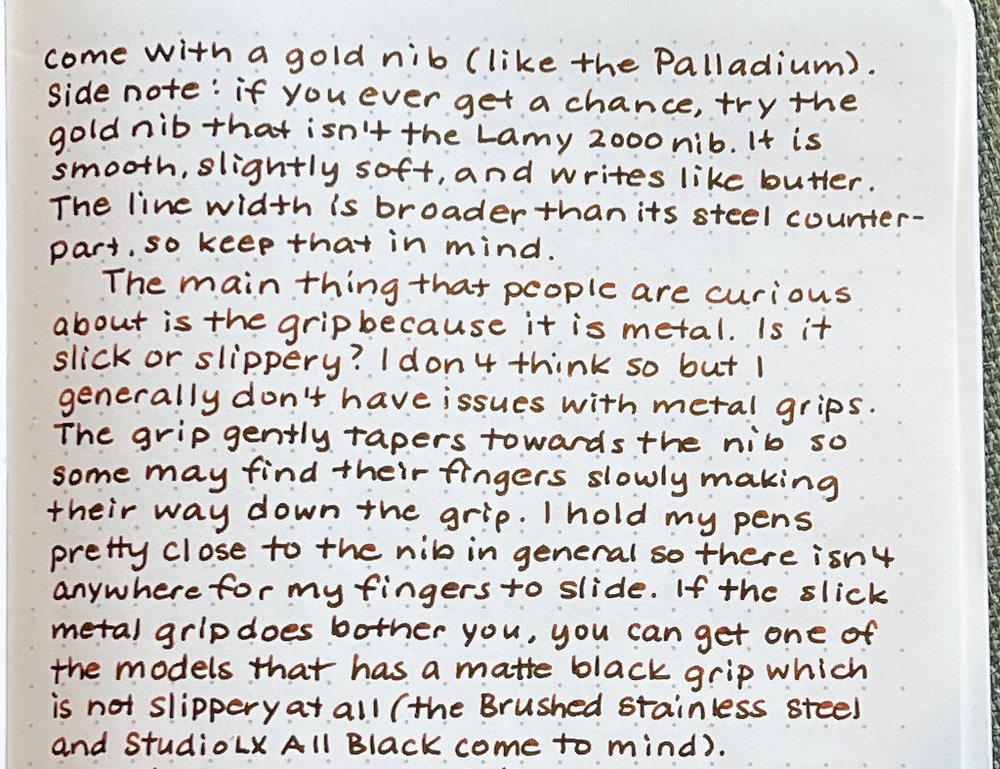 come with a gold nib (like the Palladium).
Side note: if you ever get a chance, try the
gold nib that isn't the Lamy 2000 nib. It is
smooth, slightly soft, and writes like butter.
The line width is broader than its steel counter-
part, so keep that in mind.
The main thing that people are curious
about is the grip because it is metal. Is it
slick or slippery? I don't think so but I
generally don't have issues with metal grips.
The grip gently tapers towards the nib so
some may find their fingers slowly making
their way down the grip. I hold my pens
pretty close to the nib in general so there isn't
anywhere for my fingers to slide. If the slick
metal grip does bother you, you can get one of
the models that has a matte black grip which
is not slippery at all (the Brushed Stainless Steel
and Studio LX All Black come to mind).